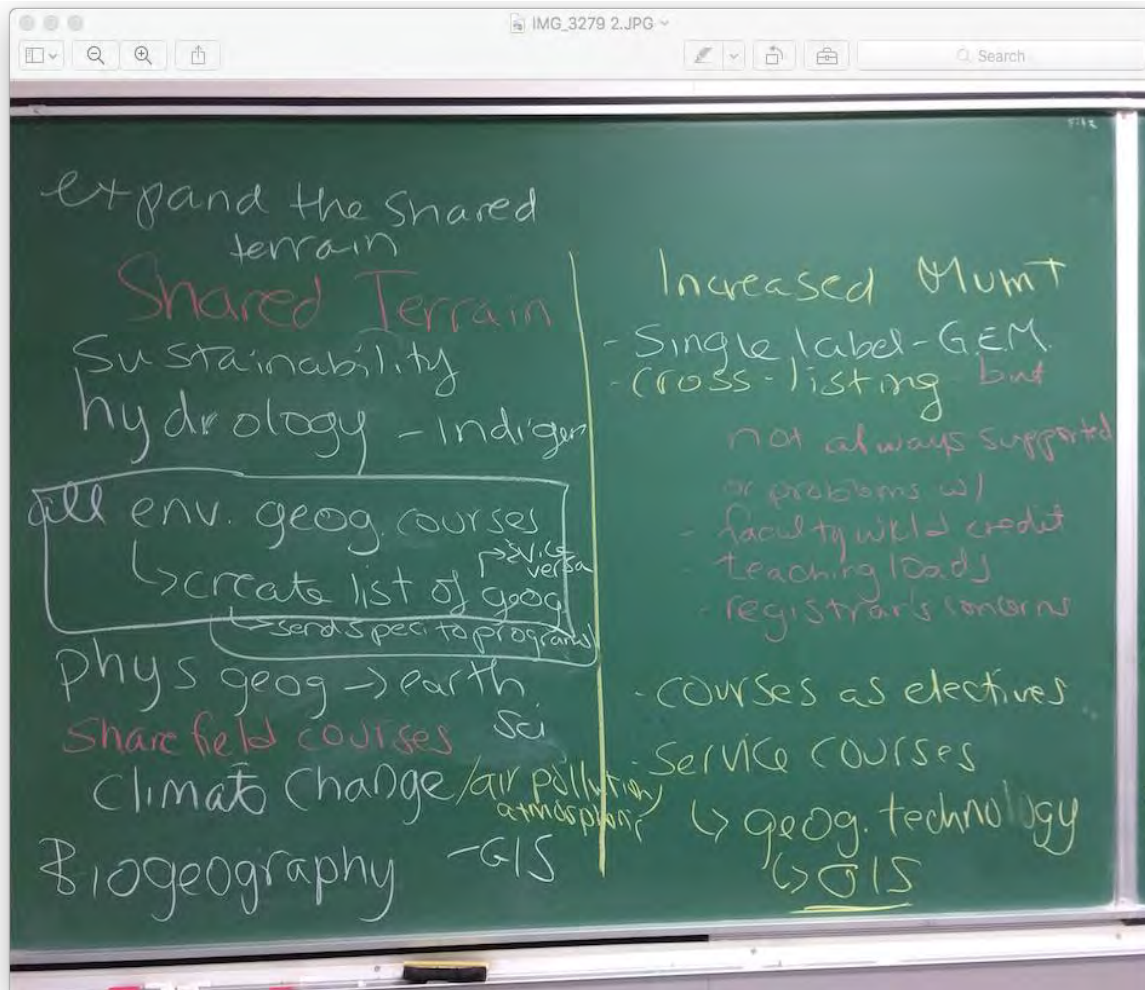 IMG_3279 2.JPG
Search
expand the shared
terrain
Shared Terrain
Sustainability
hydrology - Indigen
all env. geog. courses
→ vice
versa
↳ create list of geog
↳ send speci to programs
phys geog → earth
sci
share field courses
climate change / air pollution/
Biogeography - GIS
Increased Mvmt
- Single label - G.E.M.
- cross-listing but
not always supported
or problems w/
- faculty wkld credit
- teaching loads
- registrar's concerns
- courses as electives
- service courses
↳ geog. technology
↳ GIS